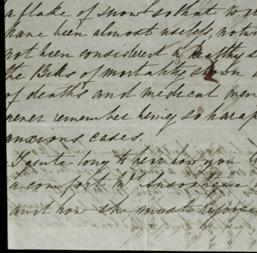 a flake of snow so that w
have been almost useless, notw
not been considered a healthy s
the Bills of mortality shown
of deaths and medical men
never remember being so harap
anxious cases.
I quite long to hear how you
a comfort Mrs
and how she must rejoice